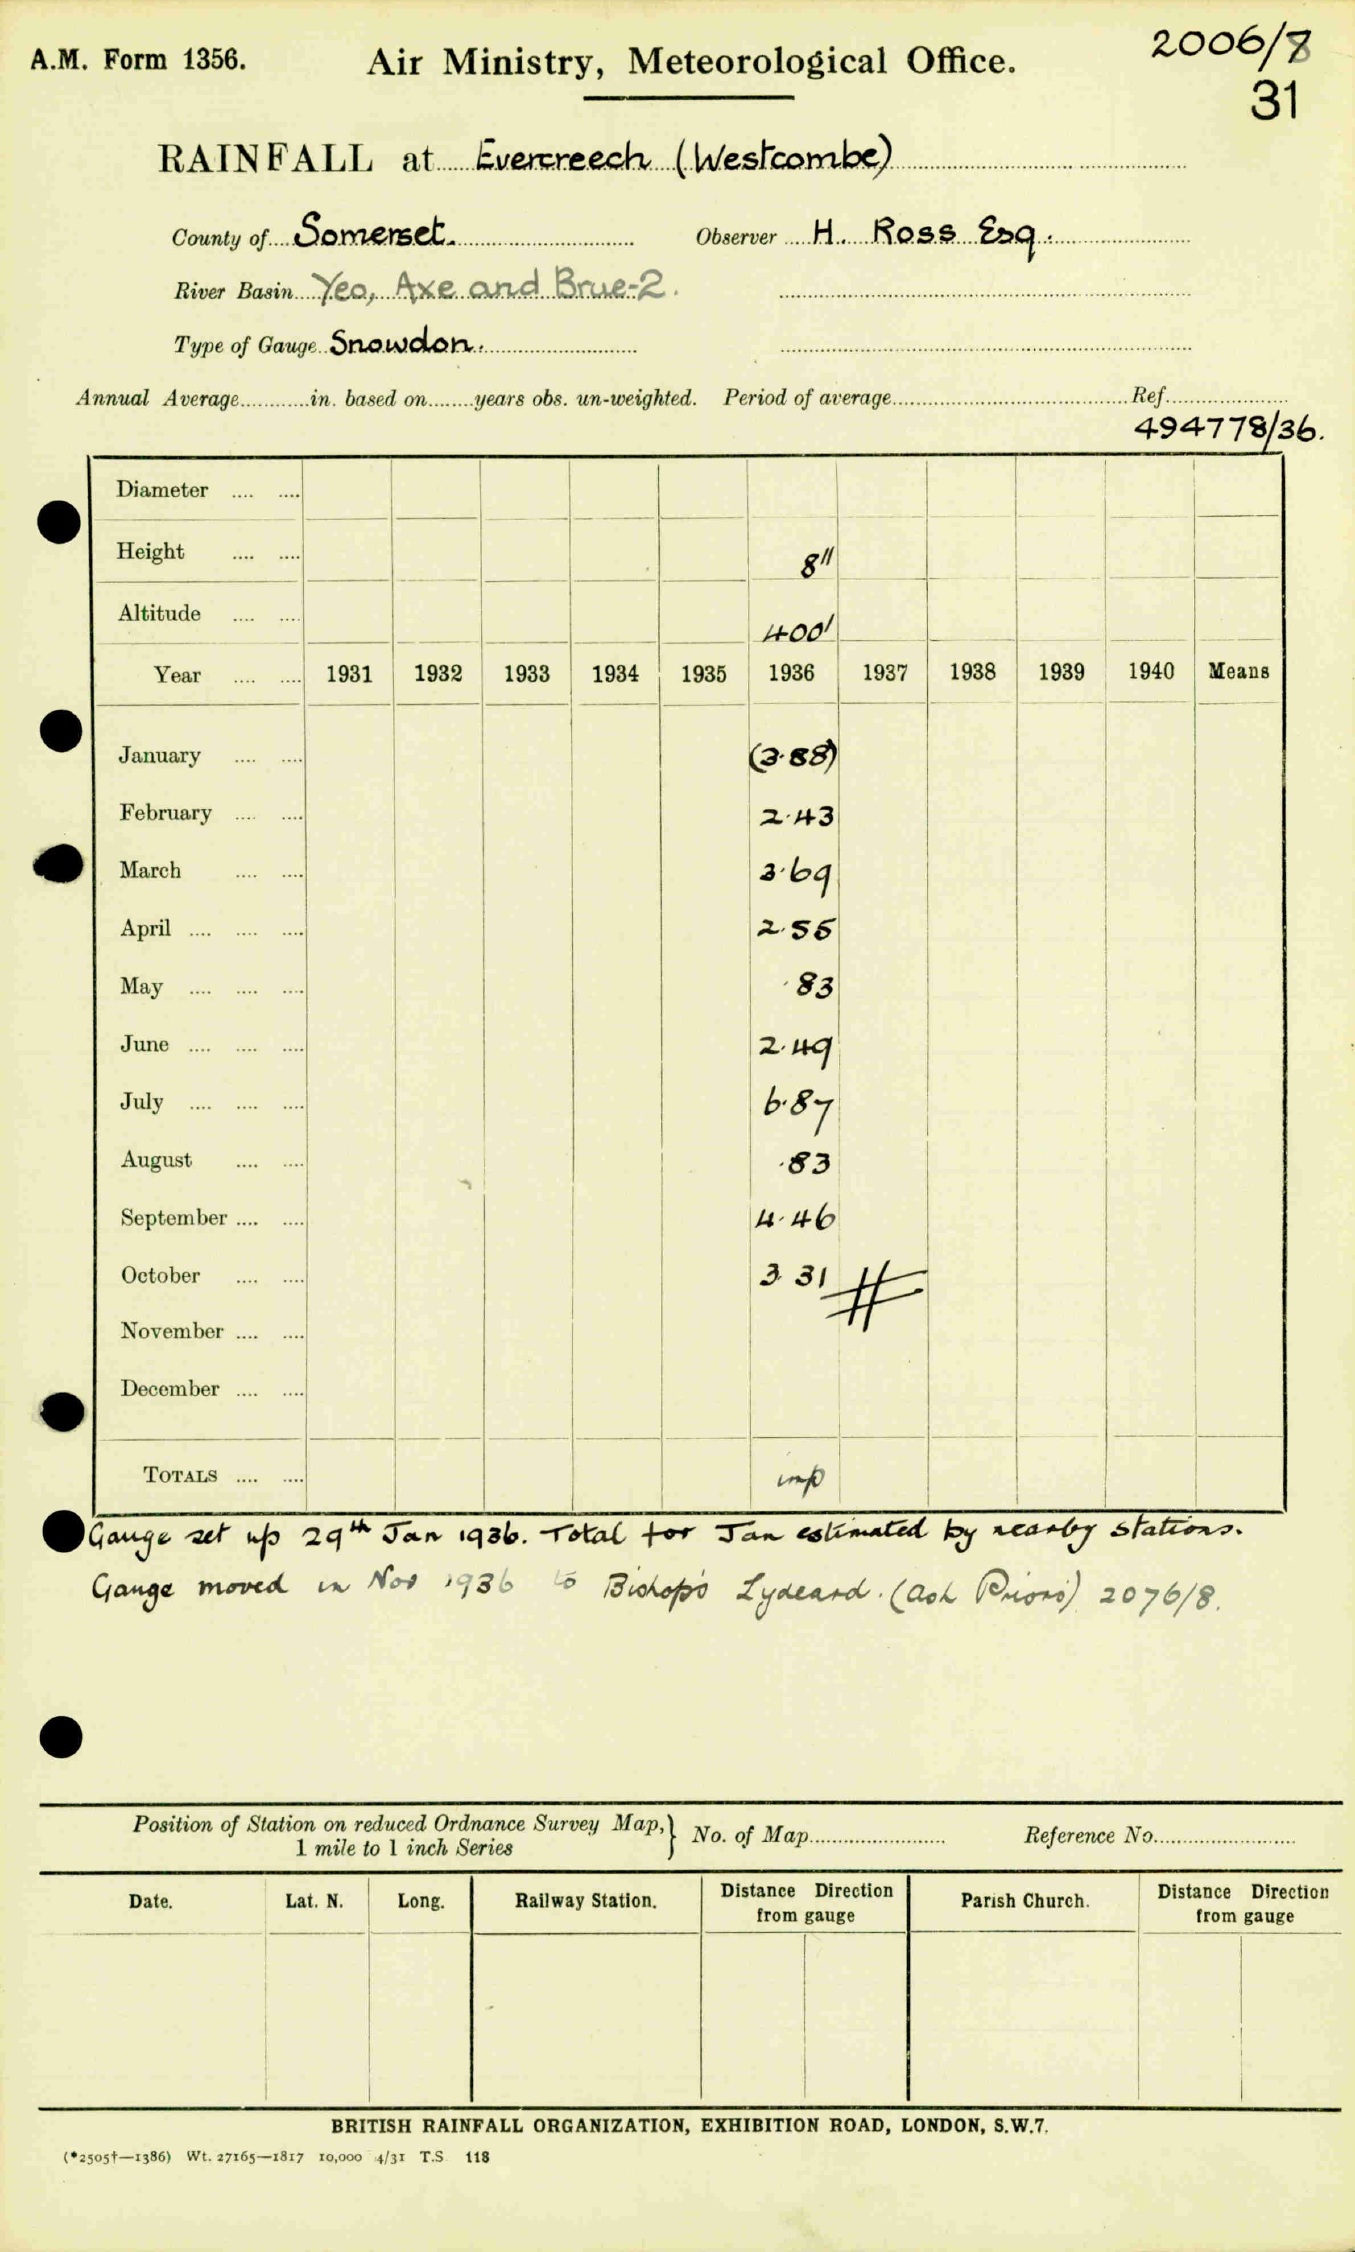 A.M. Form 1356. Air Ministry, Meteorological Office. 2006/8
31
RAINFALL at Evercreech (Westcombe)
County of Somerset. Observer H. Ross Esq.
River Basin Yeo, Axe and Brue-2.
Type of Gauge Snowdon.
Annual Average............in. based on........years obs. un-weighted. Period of average.................... Ref....................
494778/36.
Diameter .... ....
Height .... .... 8"
Altitude .... .... 400'
Year .... .... 1931 1932 1933 1934 1935 1936 1937 1938 1939 1940 Means
January .... .... (3.88)
February .... .... 2.43
March .... .... 3.69
April .... .... .... 2.55
May .... .... .... .83
June .... .... .... 2.49
July .... .... .... 6.87
August .... .... .83
September .... .... 4.46
October .... .... 3 31
November .... ....
December .... ....
TOTALS .... .... imp
Gauge set up 29th Jan 1936. Total for Jan estimated by nearby stations.
Gauge moved in Nov 1936 to Bishop's Lydeard. (Ash Priors) 2076/8.
Position of Station on reduced Ordnance Survey Map, } No. of Map.................... Reference No....................
1 mile to 1 inch Series
Date. Lat. N. Long. Railway Station. Distance Direction from gauge Parish Church. Distance Direction from gauge
BRITISH RAINFALL ORGANIZATION, EXHIBITION ROAD, LONDON, S.W.7.
(*2505†—1386) Wt. 27165—1817 10,000 4/31 T.S. 118